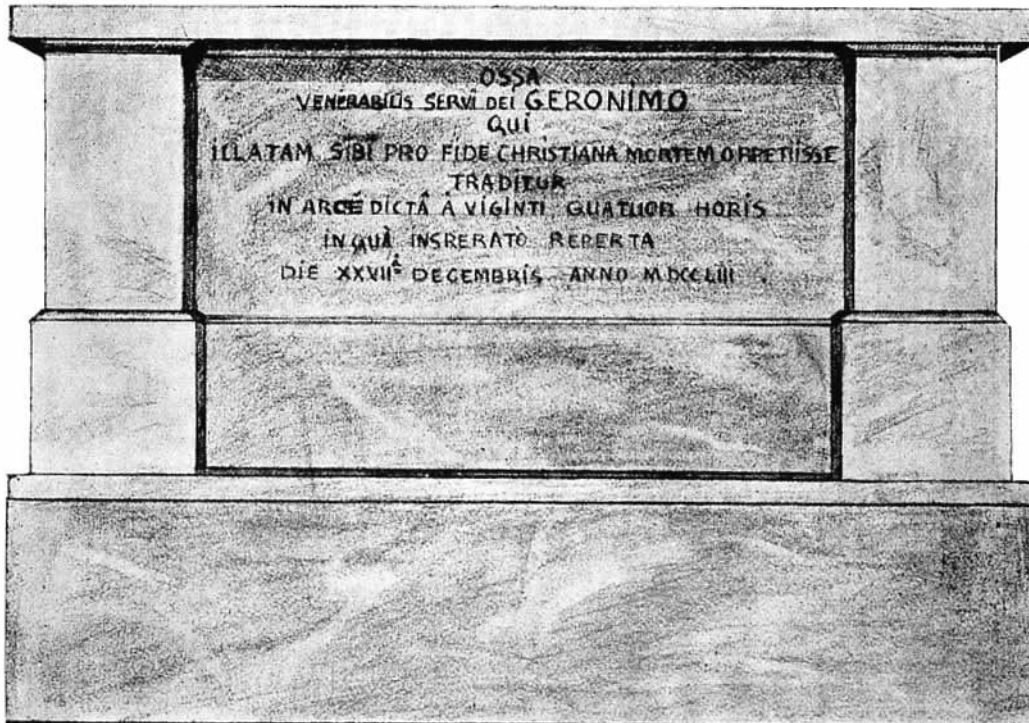 OSSA
VENERABILIS SERVI DEI GERONIMO
QUI
ILLATAM SIBI PRO FIDE CHRISTIANA MORTEM OPPETIISSE
TRADITUR
IN ARCE DICTÂ À VIGINTI QUATUOR HORIS
IN QUÂ INSPERATO REPERTA
DIE XXVIIÂ DECEMBRIS ANNO MDCCLIII.